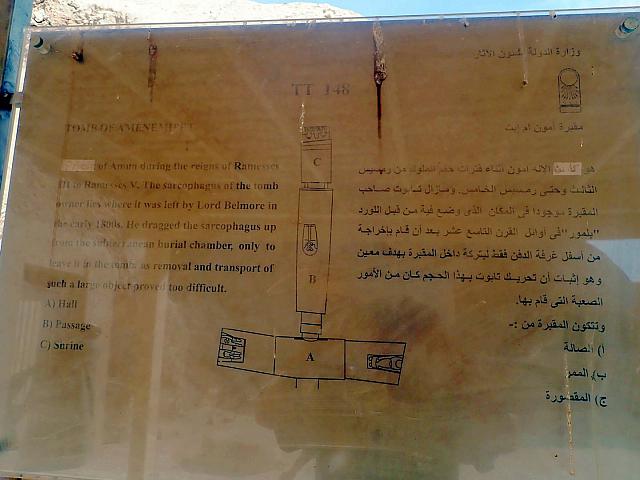 وزارة الدولة لشئون الآثار
TT 148
TOMB OF AMENEMIPET
مقبرة آمون ام إبت
of Amun during the reigns of Ramesses
III to Ramesses V. The sarcophagus of the tomb
owner lies where it was left by Lord Belmore in
the early 1800s. He dragged the sarcophagus up
from the subterranean burial chamber, only to
leave it in the tomb, as removal and transport of
such a large object proved too difficult.
A) Hall
B) Passage
C) Shrine
C
B
A
هو الاله آمون أثناء فترات حكم الملوك من رمسيس
الثالث وحتى رمسيس الخامس. ومازال تابوت صاحب
المقبرة موجودا فى المكان الذى وضع فية من قبل اللورد
"بلمور" فى أوائل القرن التاسع عشر بعد أن قام بإخراجة
من أسفل غرفة الدفن فقط ليتركة داخل المقبرة بهدف معين
وهو إثبات أن تحريك تابوت بهذا الحجم كان من الأمور
الصعبة التى قام بها.
وتتكون المقبرة من :-
أ) الصالة
ب) الممر
ج) المقصورة